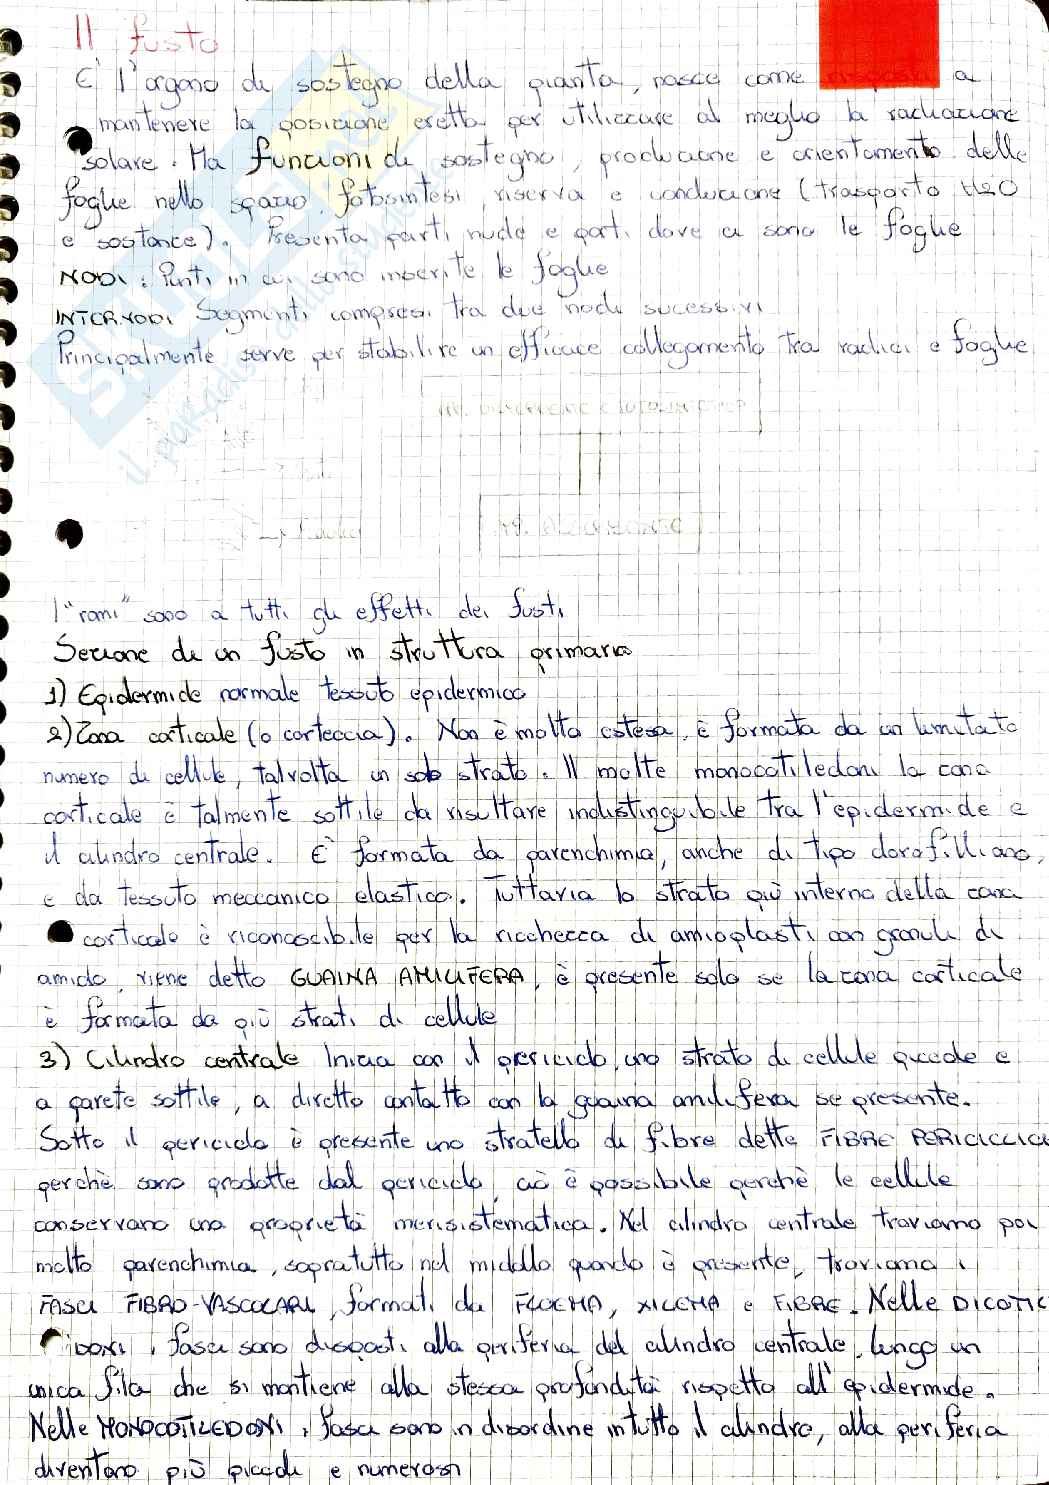 Il fusto
E' l'organo di sostegno della pianta, nasce come risposta a
mantenere la posizione eretta per utilizzare al meglio la radiazione
solare. Ha funzioni di sostegno, produzione e orientamento delle
foglie nello spazio, fotosintesi, riserva e conduzione (trasporto H2O
e sostanze). Presenta parti nude e parti dove ci sono le foglie
NODI: Punti in cui sono inserite le foglie
INTERNODI Segmenti compresi tra due nodi sucessivi
Principalmente serve per stabilire un efficace collegamento tra radici e foglie
I "rami" sono a tutti gli effetti dei fusti
Sezione di un fusto in struttura primaria
1) Epidermide normale tessuto epidermico
2) Zona corticale (o corteccia). Non è molto estesa, è formata da un limitato
numero di cellule, talvolta un solo strato. Il molte monocotiledoni la zona
corticale è talmente sottile da risultare indistinguibile tra l'epidermide e
il cilindro centrale. E' formata da parenchimia, anche di tipo clorofilliano,
e da tessuto meccanico elastico. Tuttavia lo strato più interno della zona
corticale è riconoscibile per la ricchezza di amioplasti con granuli di
amido, viene detto GUAINA AMILIFERA, è presente solo se la zona corticale
è formata da più strati di cellule
3) Cilindro centrale Inizia con il periciclo, uno strato di cellule piccole e
a parete sottile, a diretto contatto con la guaina amilifera se presente.
Sotto il periciclo è presente uno stratello di fibre dette FIBRE PERICICLICHE
perchè sono prodotte dal periciclo, ciò è possibile perchè le cellule
conservano una proprietà merisistematica. Nel cilindro centrale troviamo poi
molto parenchimia, sopratutto nel midollo quando è presente, troviamo i
FASCI FIBRO-VASCOLARI, formati da FLOEMA, XILEMA e FIBRE. Nelle DICOTI
DONI i fasci sono disposti alla periferia del cilindro centrale, lungo un
unica fila che si mantiene alla stessa profondità rispetto all'epidermide.
Nelle MONOCOTILEDONI i fasci sono in disordine in tutto il cilindro, alla periferia
diventano più piccoli e numerosi